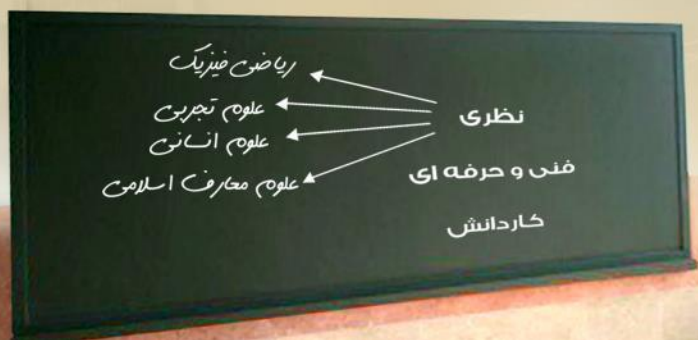 نظری
فنی و حرفه ای
کاردانش
ریاضی فیزیک
علوم تجربی
علوم انسانی
علوم معارف اسلامی